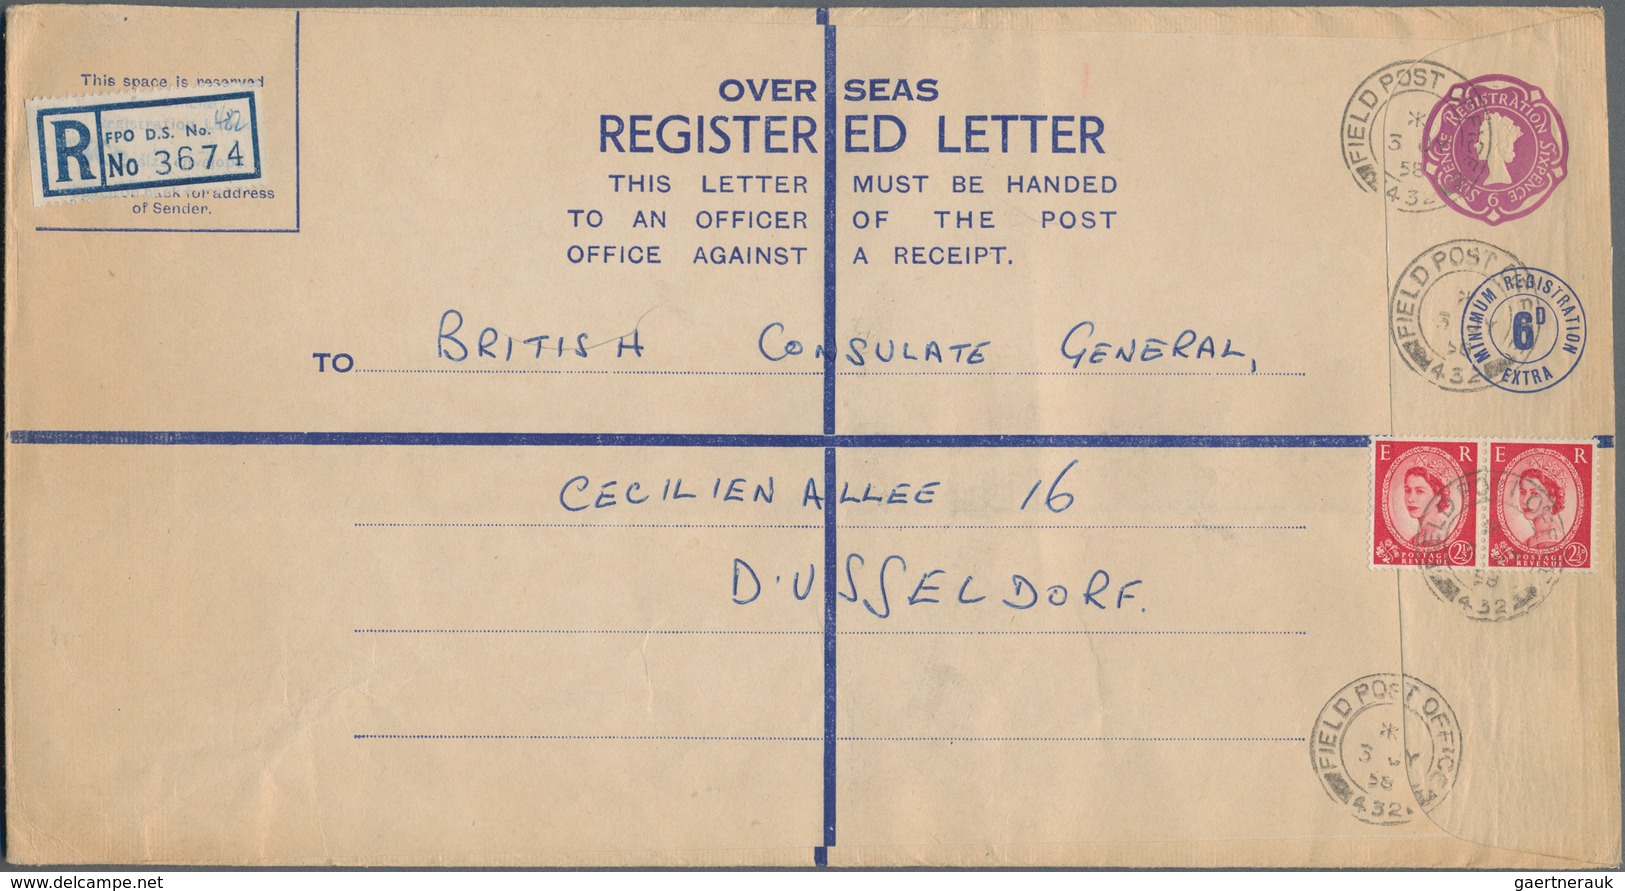 This space is reserved
R FPO D.S. No. 482
No 3674
for address
of Sender.
OVER SEAS
REGISTERED LETTER
THIS LETTER MUST BE HANDED
TO AN OFFICER OF THE POST
OFFICE AGAINST A RECEIPT.
FIELD POST
3
58
432
REGISTRATION SIXPENCE
SIXPENCE
6
FIELD POST
432
MINIMUM REGISTRATION
6D
EXTRA
TO BRITISH CONSULATE GENERAL,
CECILIENALLEE 16
DUSSELDORF.
E R
POSTAGE
REVENUE
2½
E R
POSTAGE
REVENUE
2½
58
432
FIELD POST OFFICE
3
58
432
delcampe.net
gaertnerauk